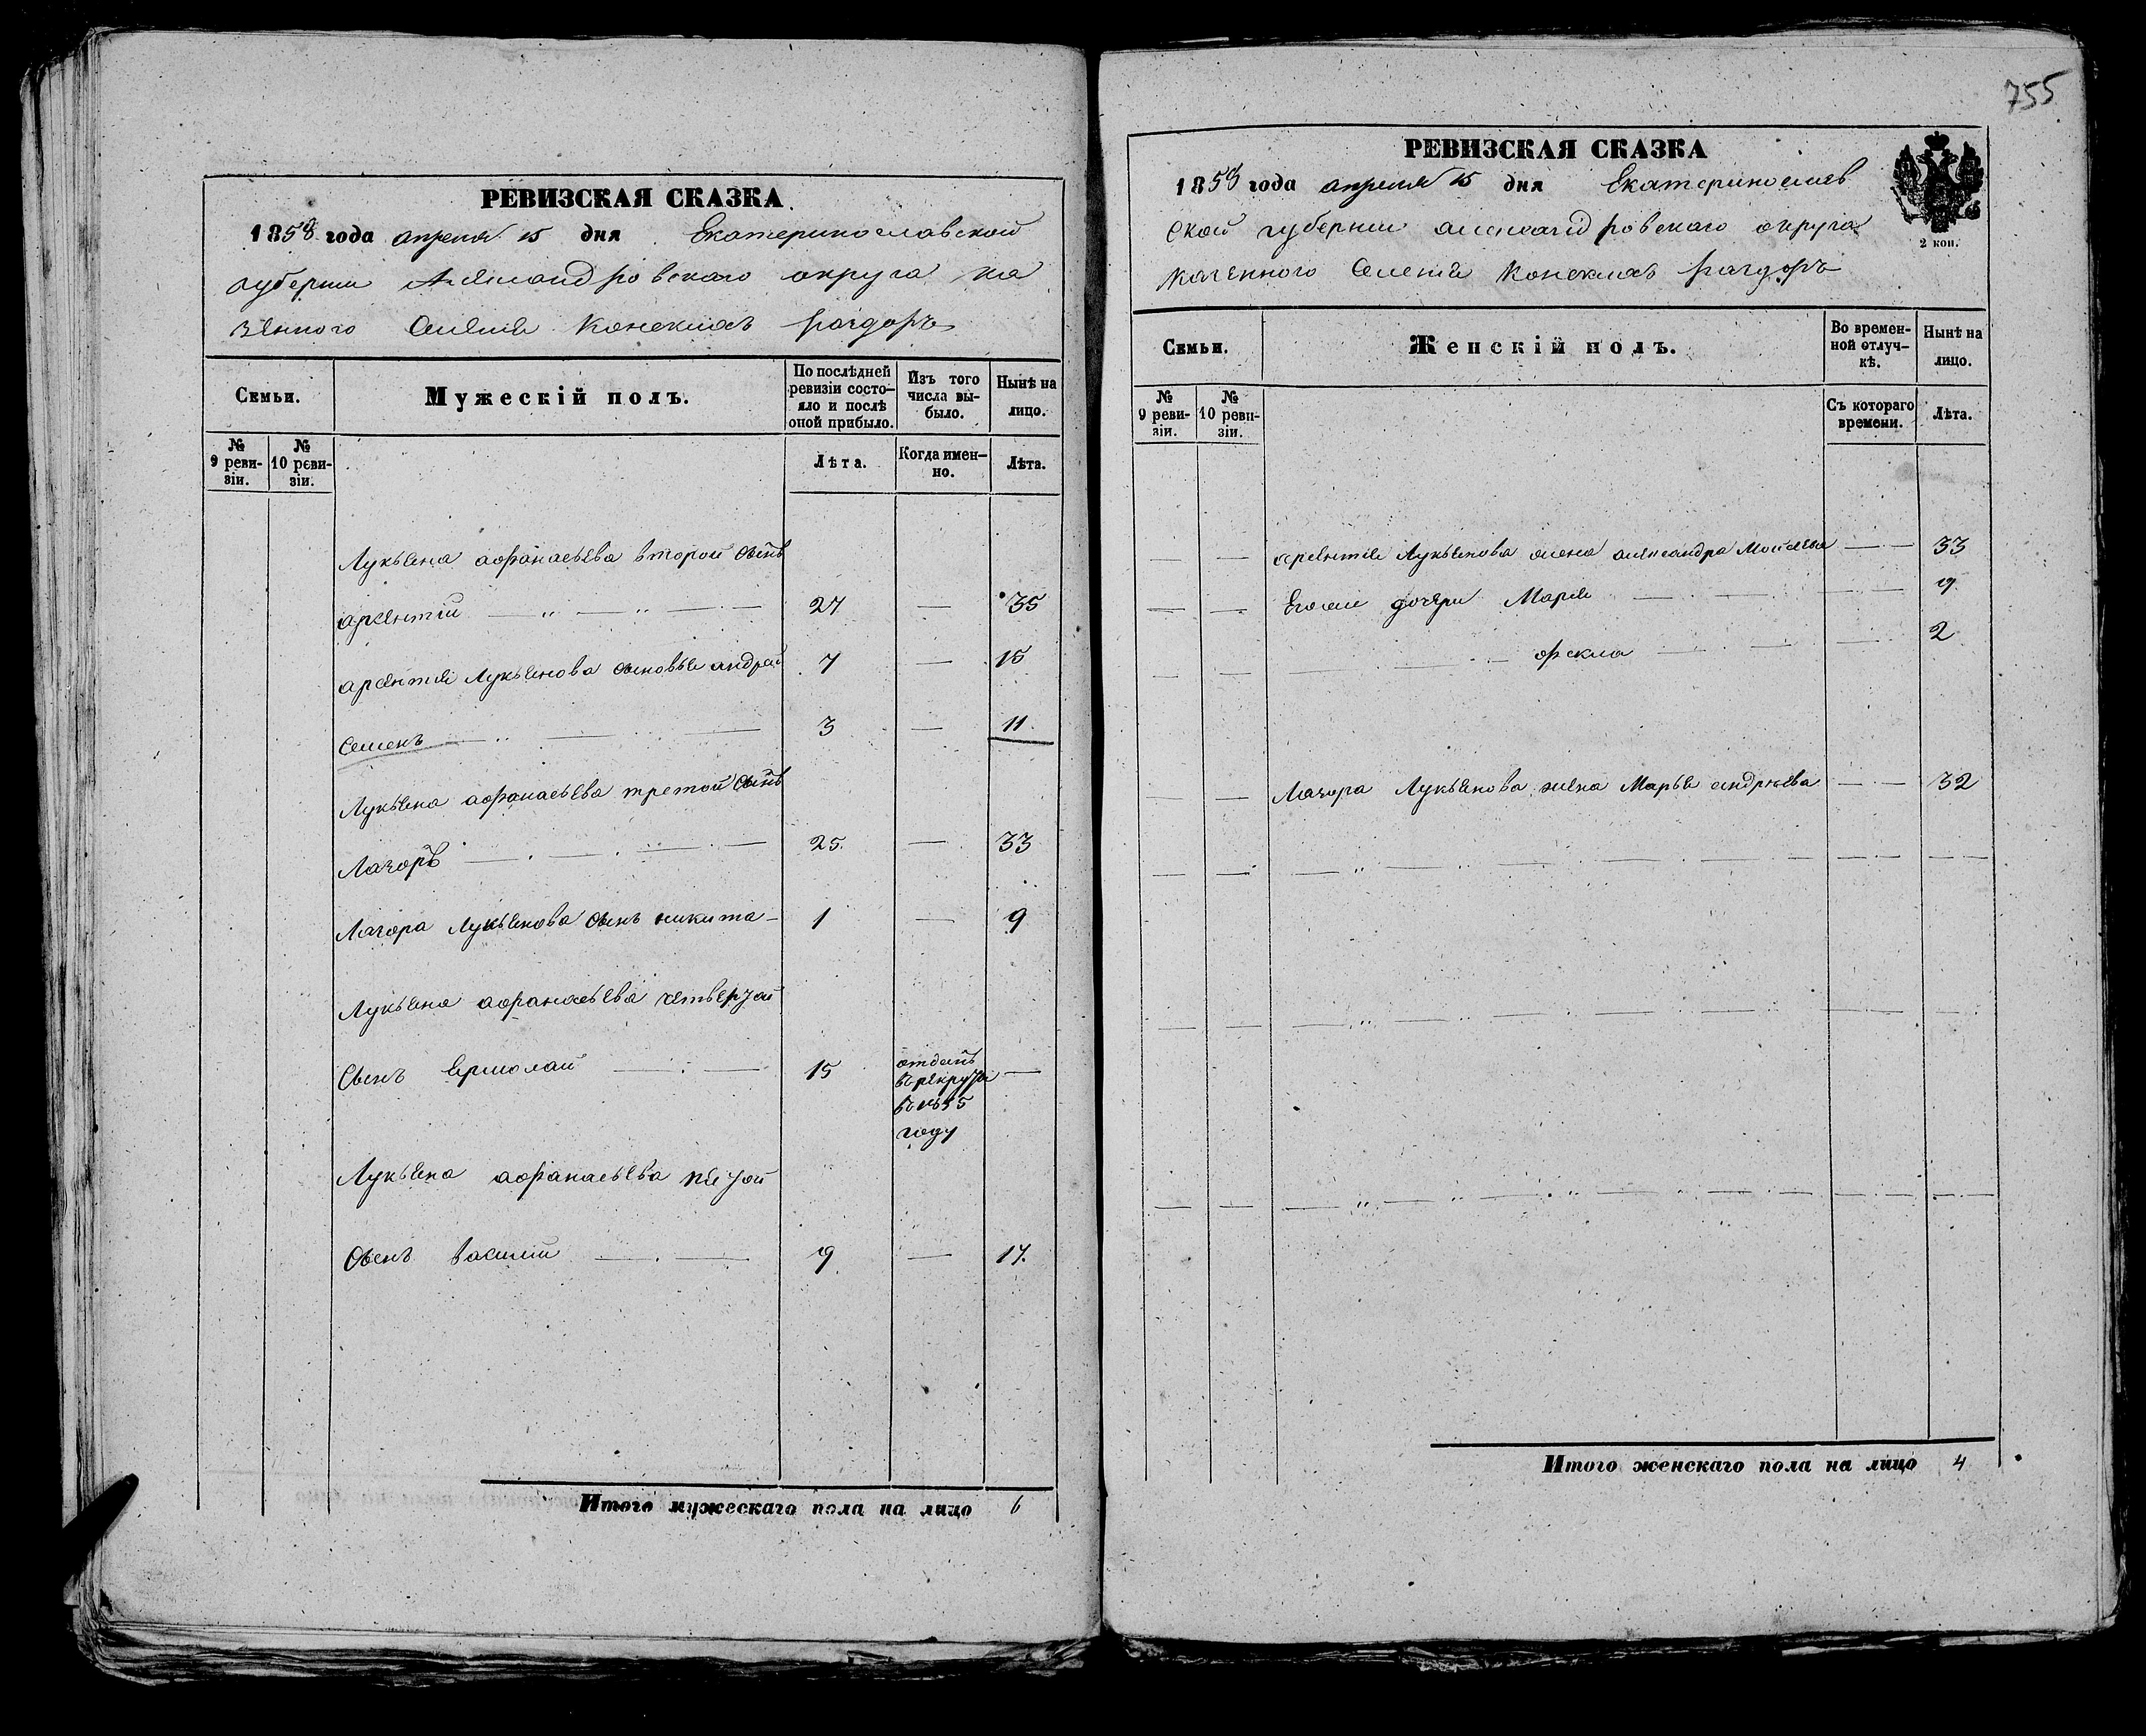 755
РЕВИЗСКАЯ СКАЗКА
1858 года апреля 15 дня Екатеринославской
губернии Александровского округа ка
зенного Селения Конскихъ раздоръ
Семьи.
Мужескій полъ.
По послѣдней ревизіи состо-
яло и послѣ
оной прибыло.
Изъ того
числа вы-
было.
Нынѣ на
лицо.
№
9 реви-
зіи.
№
10 реви-
зіи.
Лѣта.
Когда имен-
но.
Лѣта.
Лукьяна афанасьева второй сынъ
арсентій 27 — 35
арсентія Лукьянова сыновья андрей 7 — 15
семенъ 3 — 11
Лукьяна афанасьева третой сынъ
Лазоръ 25 — 33
Лазора Лукьянова сынъ никита 1 — 9
Лукьяна афанасьева четвертой
сынъ Ермолай 15 отданъ —
въ рекруты
въ 1855
году
Лукьяна афанасьева пятой
сынъ василий 9 — 17
Итого мужескаго пола на лицо 6
РЕВИЗСКАЯ СКАЗКА
1858 года апреля 15 дня Екатеринослав
ской губернии александровского округа
казенного Селения Конскихъ раздоръ
2 коп.
Семьи.
Женскій полъ.
Во времен-
ной отлуч-
кѣ.
Нынѣ на
лицо.
№
9 реви-
зіи.
№
10 реви-
зіи.
Съ котораго
времени.
Лѣта.
арсентия Лукьянова жена александра Мойсеева — 33
Егоже дочери Мария — 9
фекла — 2
Лазора Лукьянова жена Марья андреева — 32
Итого женскаго пола на лицо 4